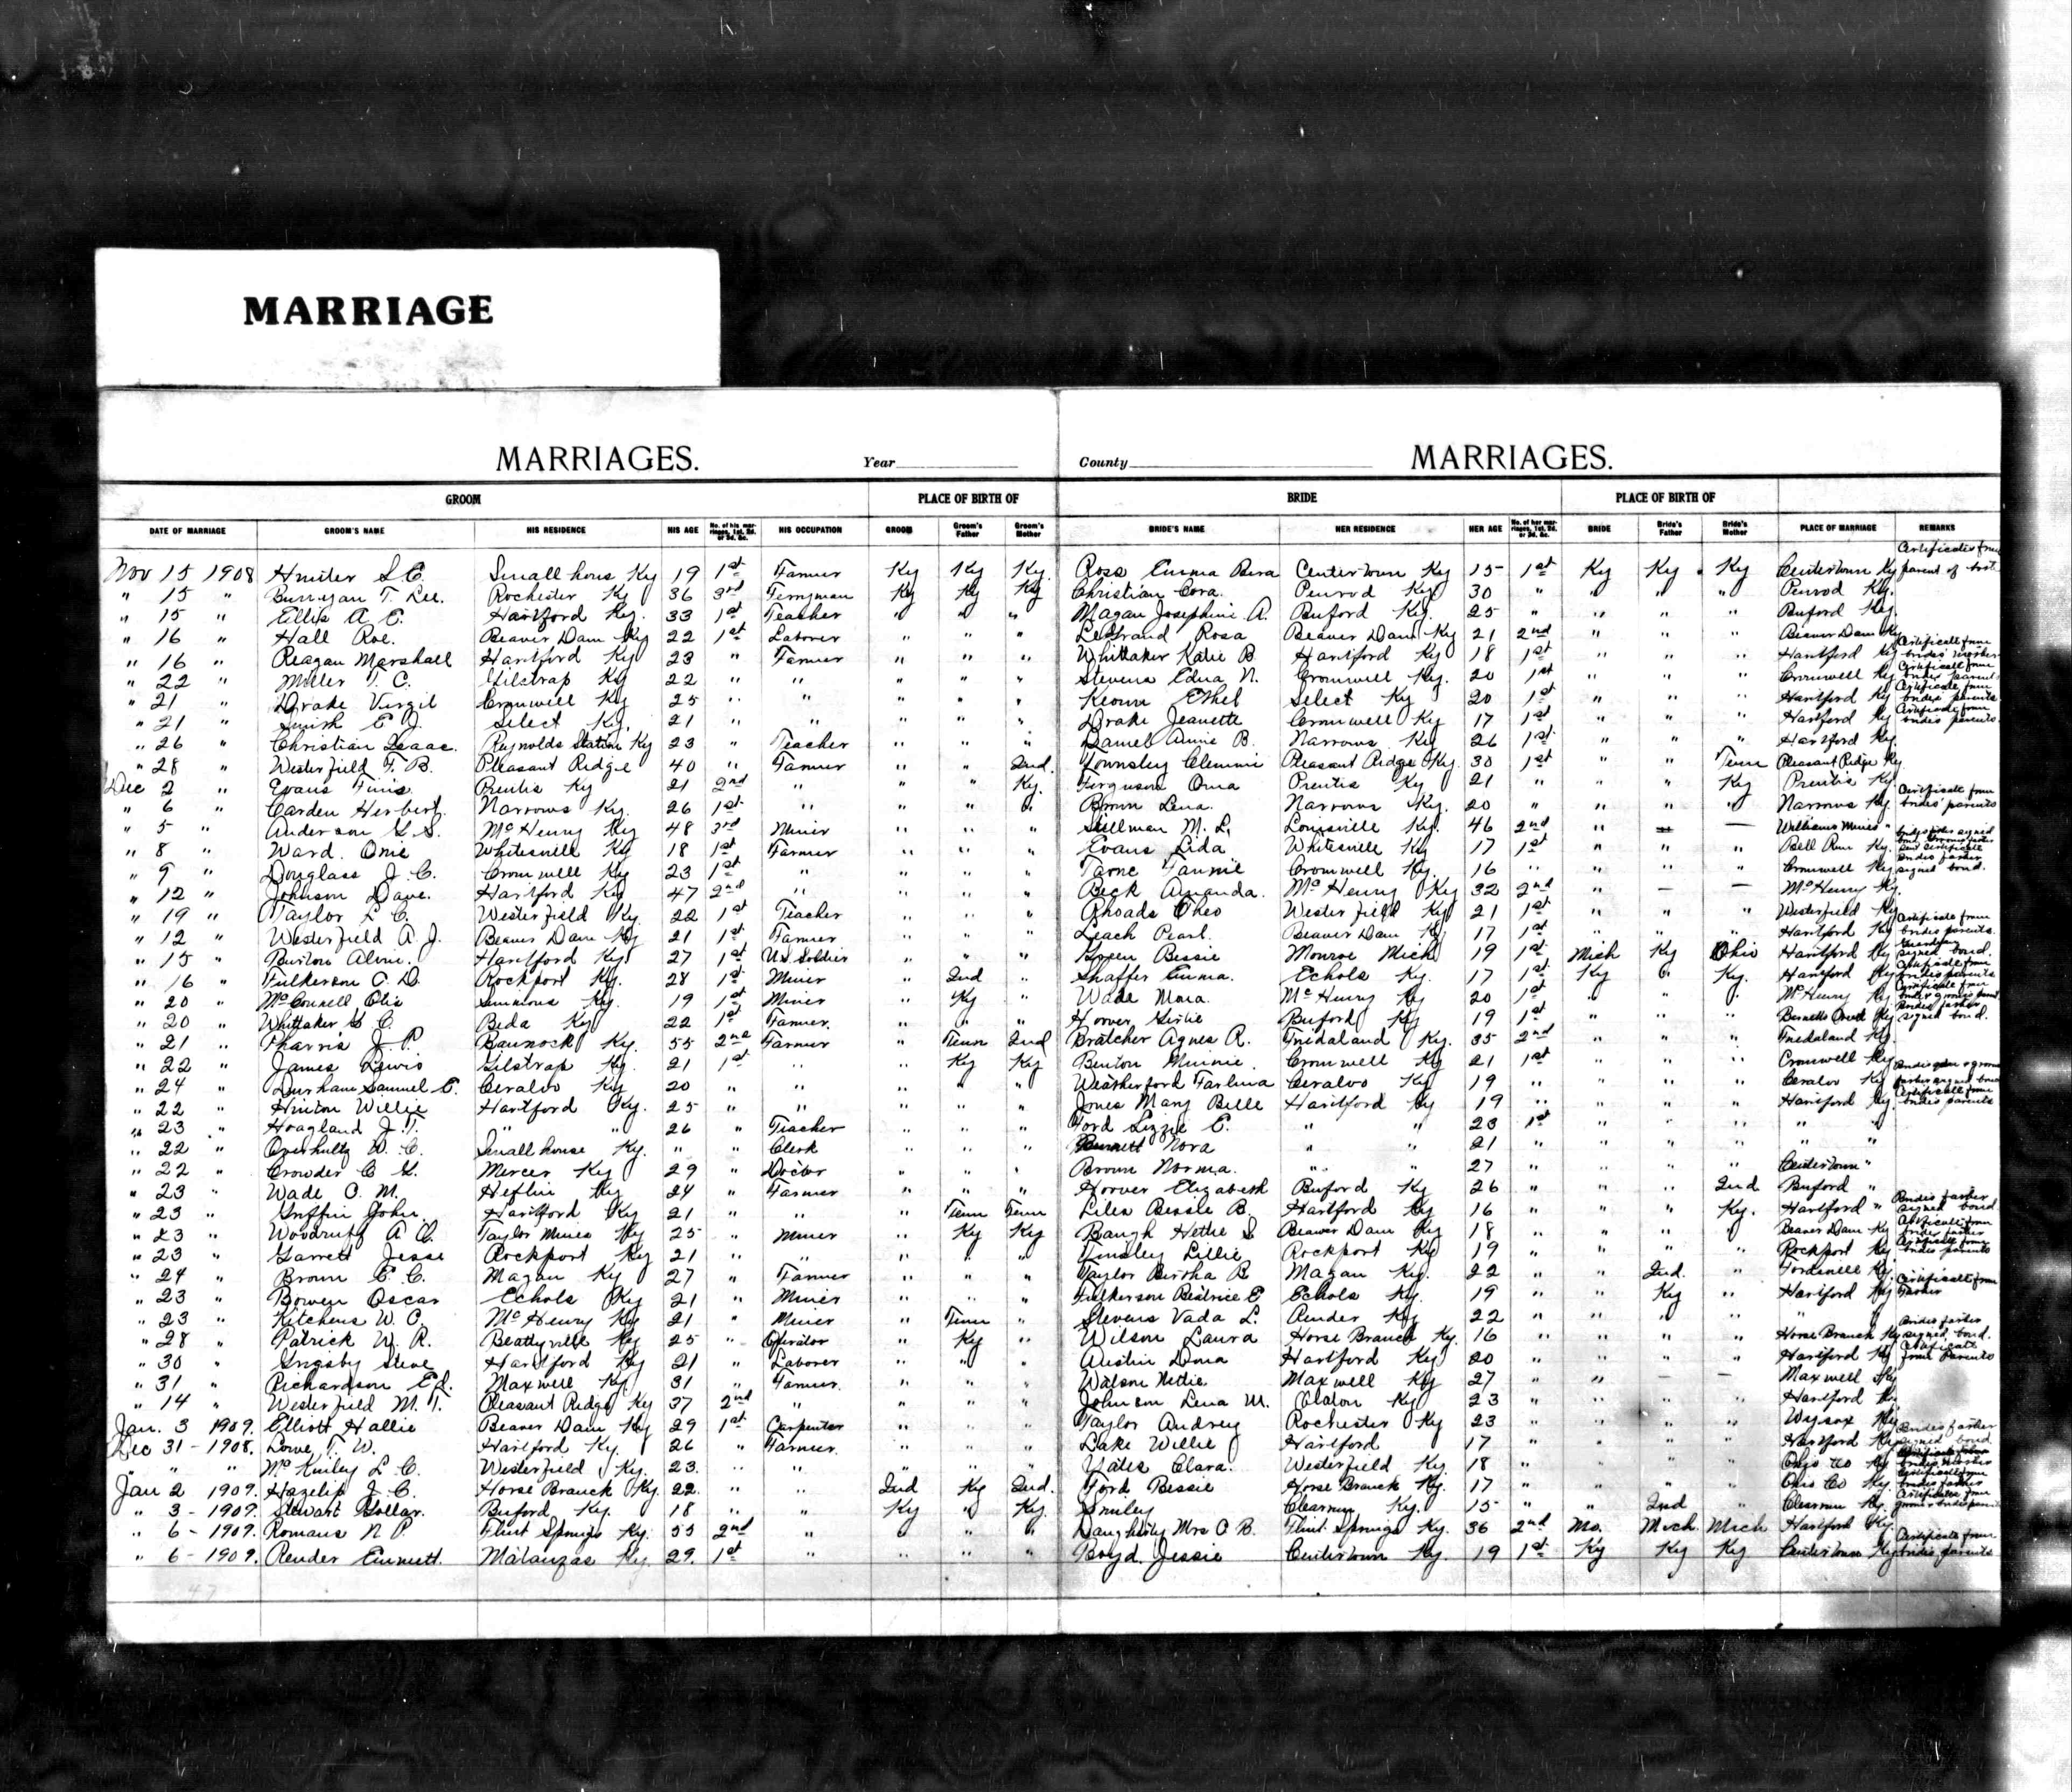 MARRIAGE
MARRIAGES. Year County MARRIAGES.
GROOM PLACE OF BIRTH OF BRIDE PLACE OF BIRTH OF
DATE OF MARRIAGE GROOM'S NAME HIS RESIDENCE HIS AGE No. of his marriages, 1st, 2d, or 3d, &c. HIS OCCUPATION GROOM Groom's Father Groom's Mother BRIDE'S NAME HER RESIDENCE HER AGE No. of her marriages, 1st, 2d, or 3d, &c. BRIDE Bride's Father Bride's Mother PLACE OF MARRIAGE REMARKS
Nov 15 1908 Hunter S. C. Smallhous Ky 19 1st Farmer Ky Ky Ky Ross Emma Centertown Ky 15 1st Ky Ky Ky Centertown Ky Certificates from parent of both
" 15 " T. Lee. Rochester Ky 36 3rd Ferryman Ky Ky Ky Christian Cora. Penrod Ky. 30 " " " " Penrod Ky.
" 15 " Ellis A. E. Hartford Ky. 33 1st Teacher " " " Magan Josephine A. Buford Ky. 25 " " " " Buford Ky.
" 16 " Hall Roe. Beaver Dam Ky 22 1st Laborer " " " LeGrand Rosa Beaver Dam Ky 21 2nd " " " Beaver Dam Ky
" 16 " Reagan Marshall Hartford Ky 23 " Farmer " " " Whittaker Katie B Hartford Ky 18 1st " " " Hartford Ky Certificate from brides' mother
" 22 " Miller T. C. Gilstrap Ky 22 " " " " " Stevens Edna N. Cromwell Ky. 20 1st " " " Cromwell Ky Certificate from brides parent
" 21 " Drake Virgil Cromwell Ky 25 " " " " " Keown Ethel Select Ky 20 1st " " " Hartford Ky Certificate from brides parents
" 21 " Smith E. J. Select Ky. 21 " " " " " Drake Jeanette Cromwell Ky 17 1st " " " Hartford Ky Certificate from brides parents
" 26 " Christian Isaac. Reynolds Station Ky 23 " Teacher " " " Daniel Annie B. Narrows Ky 26 1st " " " Hartford Ky.
" 28 " Westerfield T. B. Pleasant Ridge 40 " Farmer " " Ind. Townsley Clemmie Pleasant Ridge Ky. 30 1st " " Tenn Pleasant Ridge Ky
Dec 2 " Evans Finis Prentis Ky 21 2nd " " " Ky. Ferguson Oma Prentis Ky 21 " " " Ky Prentis Ky.
" 6 " Carden Herbert Narrows Ky. 26 1st " " " " Brown Lena. Narrows Ky. 20 " " " " Narrows Ky. Certificate from brides' parents
" 5 " Anderson S. S. McHenry Ky 48 3rd Miner " " " Stillman M. L. Louisville Ky. 46 2nd " — — Williams Mines "
" 8 " Ward. Onie Whitesville Ky 18 1st Farmer " " " Evans Lida Whitesville Ky 17 1st " " " Bell Run Ky.
" 9 " Douglass J. C. Cromwell Ky 23 1st " " " " Fannie Cromwell Ky. 16 " " " " Cromwell Ky Brides father signed bond.
" 12 " Johnson Dave. Hartford Ky 47 2nd " " " " Beck Amanda. McHenry Ky 32 2nd " — — McHenry Ky.
" 19 " Taylor L. C. Westerfield Ky. 22 1st Teacher " " " Rhoads Oheo Westerfield Ky 21 1st " " " Westerfield Ky
" 12 " Westerfield A. J. Beaver Dam Ky 21 1st Farmer " " " Leach Pearl. Beaver Dam Ky 17 1st " " " Hartford Ky Certificate from brides parents.
" 15 " Burton Hartford Ky 27 1st U.S. Soldier " " " Bessie Monroe Mich 19 1st Mich Ky Ohio Hartford Ky Guardian signed bond.
" 16 " Fulkerson C. D. Rockport Ky. 28 1st Miner " Ind " Shaffer Emma. Echols Ky. 17 1st Ky " Ky. Hartford Ky Certificate from brides parents
" 20 " McConnell Otis Simmons Ky. 19 1st Miner " Ky " Wade Mora. McHenry Ky 20 1st " " " McHenry Ky Certificate from
" 20 " Whittaker G. C. Beda Ky 22 1st Farmer. " " " Hoover Buford Ky 19 1st " " " Ky Brides father signed bond.
" 21 " Pharris J. P. Bannock Ky. 55 2nd Farmer " Tenn Ind Bratcher Agnes R. Friedaland Ky. 35 2nd " " " Friedaland Ky.
" 22 " James Lewis Gilstrap Ky. 21 1st " " Ky Ky Benton Minnie Cromwell Ky 21 1st " " " Cromwell Ky
" 24 " Durham Samuel E. Ceralvo Ky 20 " " " " " Weatherford Ceralvo Ky 19 " " " " Ceralvo Ky
" 22 " Hinton Willie Hartford Ky. 25 " " " " " Jones Mary Belle Hartford Ky 19 " " " " Hartford Ky. Certificate from brides parents
" 23 " Hoagland J. T. " " 26 " Teacher " " " Ford Lizzie E. " " 23 1st " " " " "
" 22 " Overhultz W. C. Smallhouse Ky. " " Clerk " " " Nora " " 21 " " " " " "
" 22 " Crowder C. G. Mercer Ky 29 " Doctor " " " Brown Norma. " " 27 " " " " Centertown "
" 23 " Wade O. M. Heflin Ky 24 " Farmer " " " Hoover Elizabeth Buford Ky 26 " " " Ind Buford "
" 23 " Griffin John. Hartford Ky 21 " " " Tenn Tenn Liles Bessie B. Hartford Ky 16 " " " Ky. Hartford " Brides father signed bond.
" 23 " Woodruff A. C. Taylor Mines Ky 25 " Miner " Ky Ky Baugh Hettie S Beaver Dam Ky 18 " " " " Beaver Dam Ky Certificate from brides father
" 23 " Garrett Jesse Rockport Ky 21 " " " " " Tinsley Lillie Rockport Ky 19 " " " " Rockport Ky Certificate from brides parents
" 24 " Brown E. C. Magan Ky 27 " Farmer " " " Taylor Bertha B Magan Ky. 22 " " Ind. " Fordsville Ky.
" 23 " Bowen Oscar Echols Ky 21 " Miner " " " Fulkerson Beatrice E Echols Ky. 19 " " Ky " Hartford Ky Certificate from Father
" 23 " Kitchens W. O. McHenry Ky 21 " Miner " Tenn " Stevens Vada L. Render Ky 22 " " " " " "
" 28 " Patrick W. R. Beattyville Ky 25 " Operator " Ky " Wilson Laura Horse Branch Ky. 16 " " " " Horse Branch Ky Brides father signed bond.
" 30 " Grigsby Steve Hartford Ky 21 " Laborer " " " Austin Dona Hartford Ky 20 " " " " Hartford Ky Certificate from Parents
" 31 " Richardson Ed. Maxwell Ky. 31 " Farmer. " " " Watson Nettie Maxwell Ky 27 " " — — Maxwell Ky
" 14 " Westerfield M. T. Pleasant Ridge Ky 37 2nd " " " " Johnson Lena M. Ky 23 " " " " Hartford Ky.
Jan. 3 1909. Elliott Hallie Beaver Dam Ky 29 1st Carpenter " " " Taylor Audrey Rochester Ky 23 " " " " Wysox Ky
Dec 31 - 1908. Lowe T. W. Hartford Ky. 26 " Farmer. " " " Lake Willie Hartford 17 " " " " Hartford Ky Brides father signed bond
" " " McKinley L. C. Westerfield Ky. 23. " " " " " Yates Clara. Westerfield Ky. 18 " " " " Ohio Co Ky
Jan 2 1909. Hazelip J. C. Horse Branch Ky. 22. " " Ind Ky Ind. Ford Bessie Horse Branch Ky. 17 " " " " Ohio Co Ky.
" 3 - 1909. Stewart Buford Ky. 18 " " Ky " Ky. Smiley Clearrun Ky. 15 " " Ind " Clearrun Ky.
" 6 - 1909. Romans N. P. Flint Springs Ky. 55 2nd " " " " Daughirty Mrs O. B. Flint Springs Ky. 36 2nd Mo. Mich. Mich Hartford Ky.
" 6 - 1909. Render Emmett. Matanzas Ky. 29. 1st " " " " Boyd Jessie Centertown Ky. 19 1st Ky Ky Ky Centertown Ky Certificate from brides parents
47